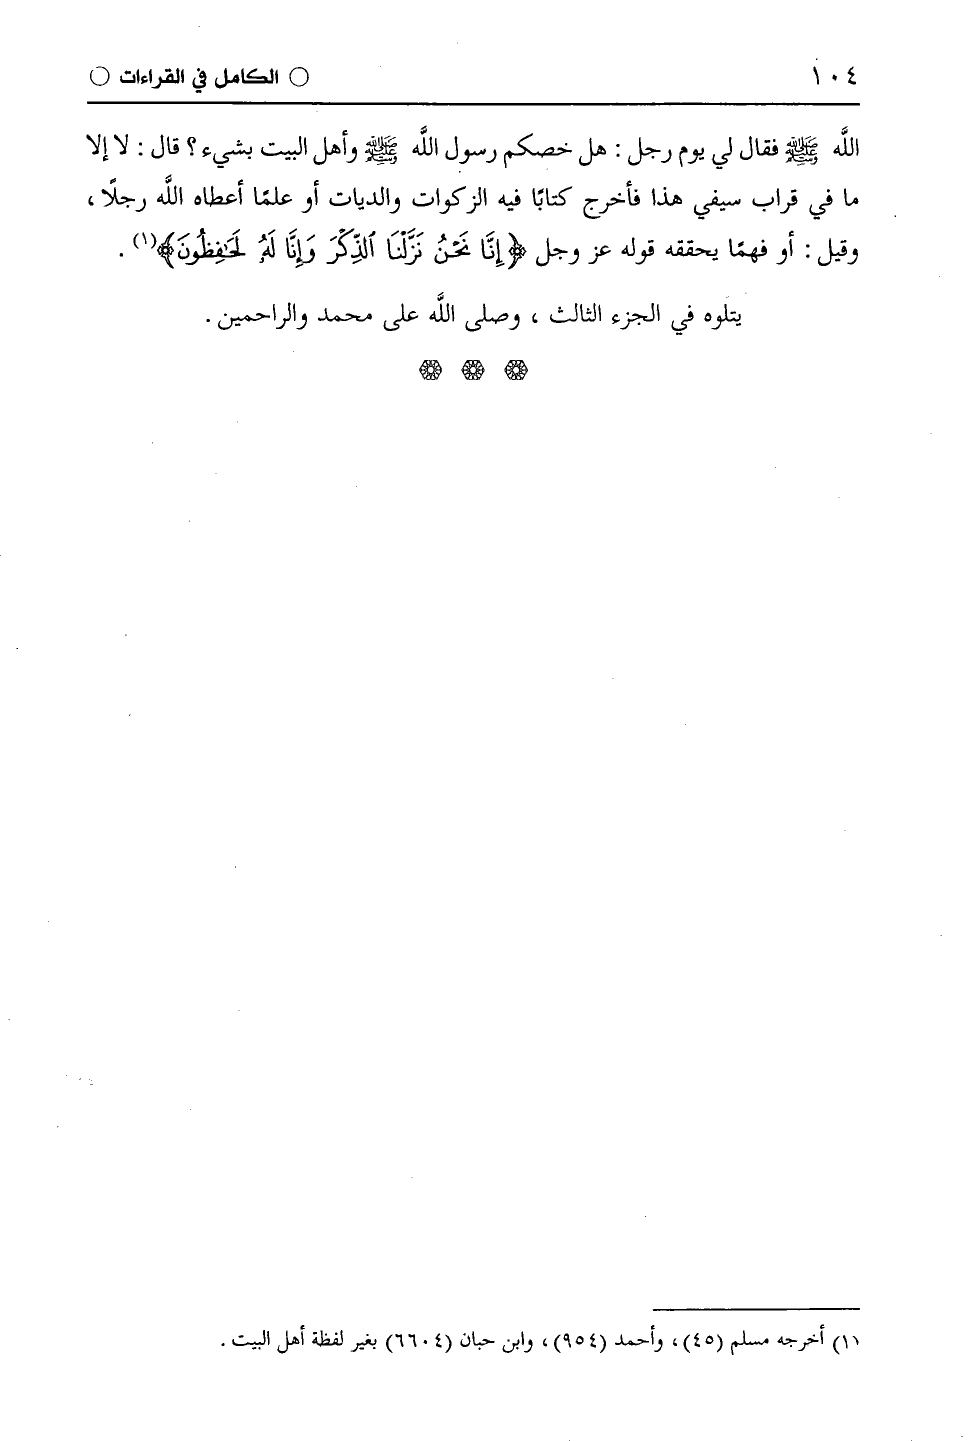 ١٠٤
○ الكامل في القراءات ○
اللَّه ﷺ فقال لي يوم رجل : هل خصكم رسول اللَّه ﷺ وأهل البيت بشيء ؟ قال : لا إلا
ما في قراب سيفي هذا فأخرج كتابًا فيه الزكوات والديات أو علمًا أعطاه اللَّه رجلًا ،
وقيل : أو فهمًا يحققه قوله عز وجل ﴿إِنَّا نَحْنُ نَزَّلْنَا ٱلذِّكْرَ وَإِنَّا لَهُۥ لَحَٰفِظُونَ﴾(١) .
يتلوه في الجزء الثالث ، وصلى اللَّه على محمد والراحمين .
(١) أخرجه مسلم (٤٥)، وأحمد (٩٥٤)، وابن حبان (٦٦٠٤) بغير لفظة أهل البيت .